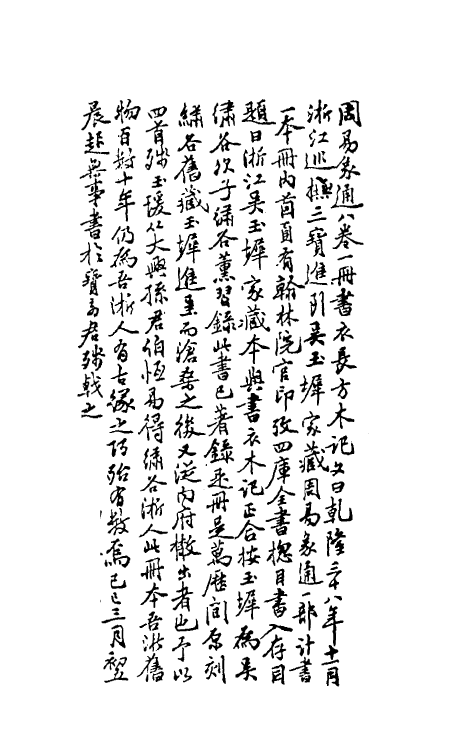 周易象通八卷一冊書衣長方木記文曰乾隆三十八年十一月
浙江巡撫三寶進到吳玉墀家藏周易象通一部計書
一本冊內首頁有翰林院官印攷四庫全書總目書入存目
題曰浙江吳玉墀家藏本與書衣木記正合按玉墀為吳
繡谷次子繡谷薰習錄此書已著錄是冊是萬歷間原刻
繡谷舊藏玉墀進呈而滄桑之後又從內府散出者也予以
四首殘玉瑗從大興孫君伯恆易得繡谷浙人此冊本吾浙舊
物百數十年仍為吾浙人有古緣之巧殆有數焉己巳三月翌
晨起無事書於寶